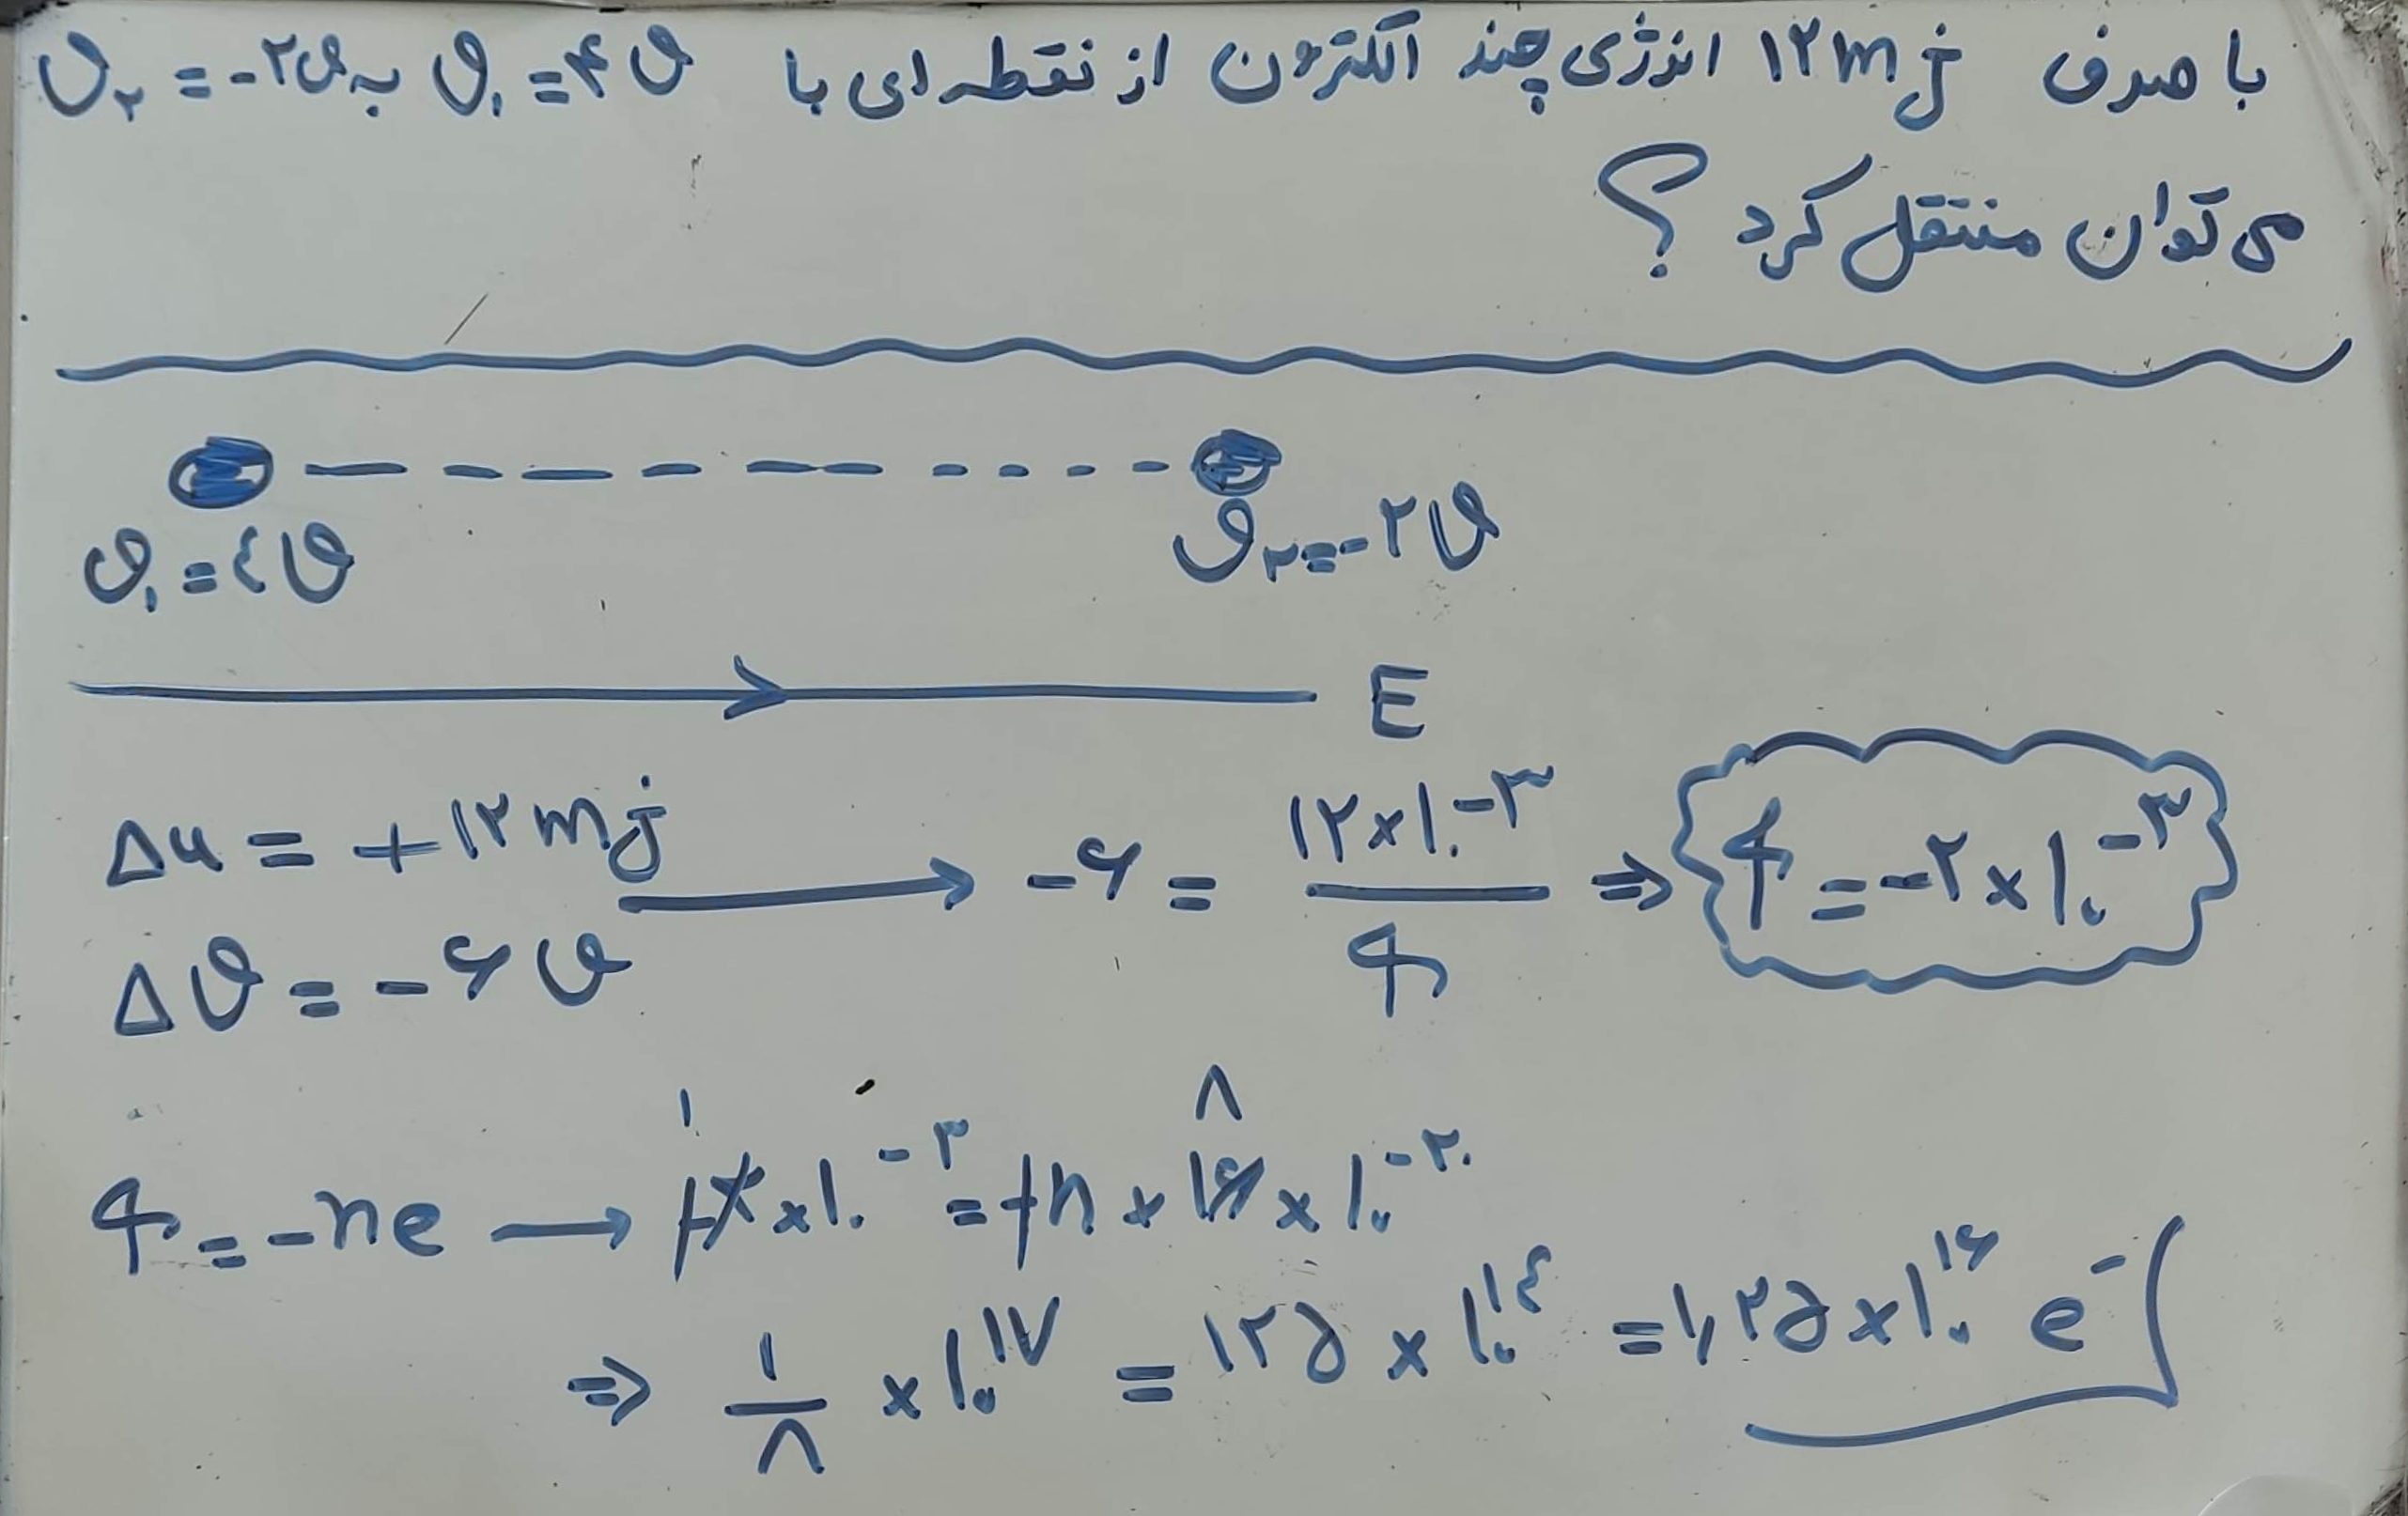 با صرف ۱۲mj انرژی چند الکترون از نقطه ای با V₁ = ۴V به V₂ = -۲V
می توان منتقل کرد ؟
V₁ = ۴V
V₂ = -۲V
E
Δu = +۱۲mj
ΔV = -۶V
→ -۶ = ۱۲×۱۰⁻³ / q ⇒ q = -۲×۱۰⁻³
q = -ne → -۲×۱۰⁻³ = -n × ۱۶ × ۱۰⁻²⁰
۱ ۸
⇒ ۱/۸ × ۱۰¹⁷ = ۱۲۵ × ۱۰¹⁴ = ۱٫۲۵ × ۱۰¹⁶ e⁻